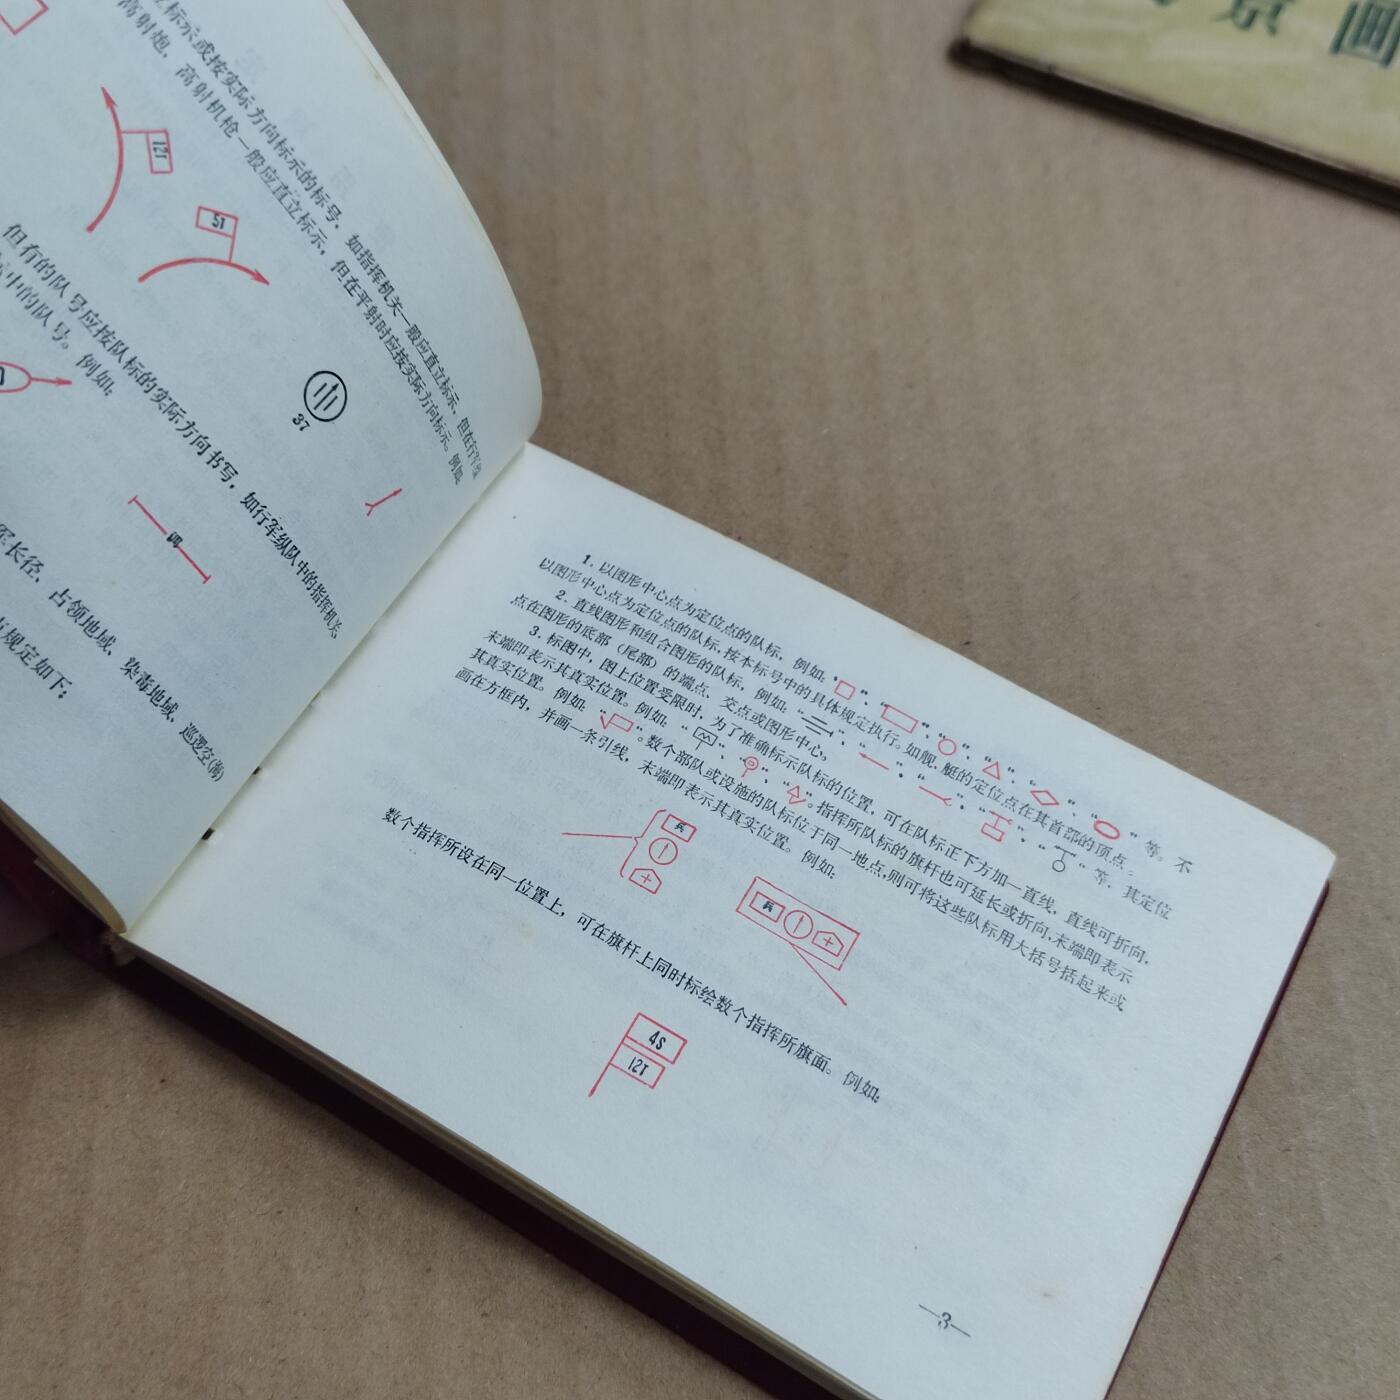 立标示或按实际方向标示的标号，如指挥机关一般应直立标示，但在行军
高射炮、高射机枪一般应直立标示，但在平射时应按实际方向标示。例如
12T
5T
37
但有的队号应按队标的实际方向书写，如行军纵队中的指挥机关、
中的队号。例如：
调
军长径、占领地域、染毒地域、巡逻空(海)
规定如下：
1. 以图形中心点为定位点的队标，例如：“□”、“▭”、“○”、“△”、“◇”、“○”等。不
以图形中心点为定位点的队标,按本标号中的具体规定执行。如舰、艇的定位点在其首部的顶点。
2. 直线图形和组合图形的队标，例如：“”、“”、“”、“”、“”等，其定位
点在图形的底部（尾部）的端点、交点或图形中心。
3. 标图中，图上位置受限时，为了准确标示队标的位置，可在队标正下方加一直线，直线可折向，
末端即表示其真实位置。例如：“”、“”、“”。指挥所队标的旗杆也可延长或折向,末端即表示
其真实位置。例如：“”。数个部队或设施的队标位于同一地点,则可将这些队标用大括号括起来或
画在方框内，并画一条引线，末端即表示其真实位置。例如：
兵
兵
数个指挥所设在同一位置上，可在旗杆上同时标绘数个指挥所旗面。例如：
4S
12T
—3—
京画